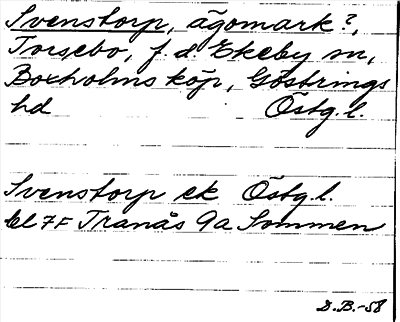 Svenstorp, ägomark?,
Torsebo, f.d. Ekeby sn,
Boxholms köp, Göstrings
hd Östg.l.
Svenstorp ek Östg.l.
bl 7F Tranås 9a Sommen
D.B.-58